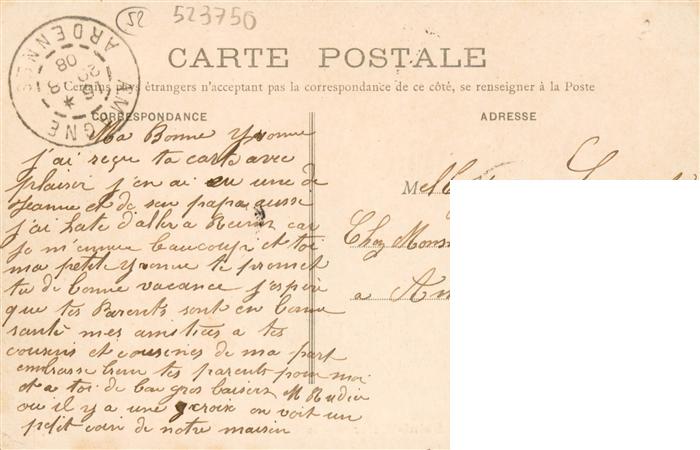 52
523750
AMAGNE
ARDENNES
08
CARTE POSTALE
Certains pays étrangers n'acceptant pas la correspondance de ce côté, se renseigner à la Poste
CORRESPONDANCE
Ma Bonne Yvonne
j'ai reçue ta carte avec
plaisir j'en ai eu une de
Jeanne et de son papa aussi
j'ai hate d'aller a Reims car
je m'ennuie beaucoup et toi
ma petite Yvonne te promet
tu de bonne vacance j'espère
que tes Parents sont en bonne
santé mes amitiées a tes
cousins et cousines de ma part
embrasse bien tes parents pour moi
et a toi de bon gros baisers M Rudier
ou il y a une croix on voit un
petit coin de notre maison
ADRESSE
Chez Mons
a